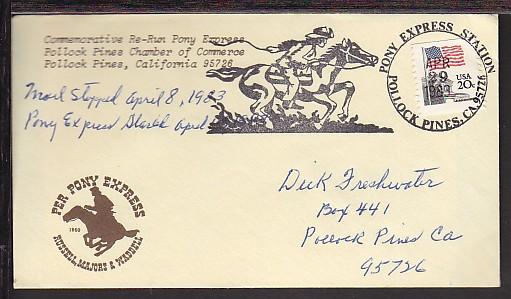 Commemorative Re-Run Pony Express
Pollock Pines Chamber of Commerce
Pollock Pines, California 95726
PONY EXPRESS STATION
APR
29
1983
USA
20c
POLLOCK PINES, CA. 95726
Mail Stopped April 8, 1983
Pony Express Started April
PER PONY EXPRESS
1860
RUSSELL, MAJORS & WADDELL
Dick Freshwater
Box 441
Pollock Pines Ca
95726